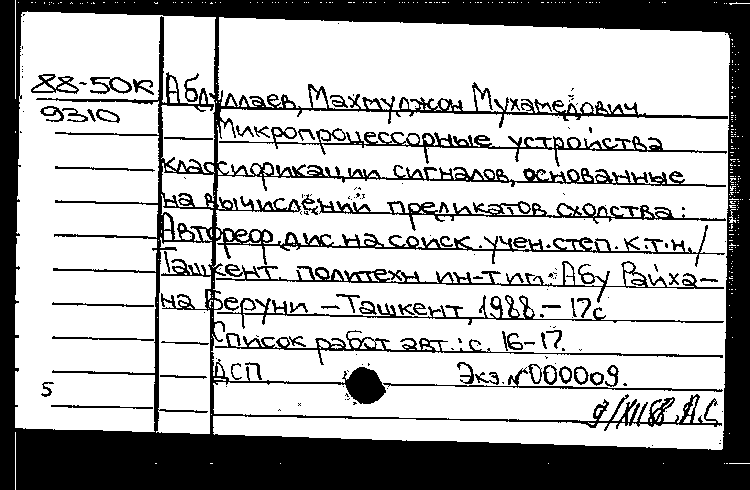 88-50К Абдуллаев, Махмуджон Мухамедович.
9310 Микропроцессорные устройства
классификации сигналов, основанные
на вычислении предикатов сходства:
Автореф. дис. на соиск. учен. степ. к.т.н. /
Ташкент. политехн ин-т им. Абу Райха-
на Беруни. - Ташкент, 1988. - 17с
Список работ авт.: с. 16-17.
ДСП. Экз. №000009.
5
9/XII 88. А.С